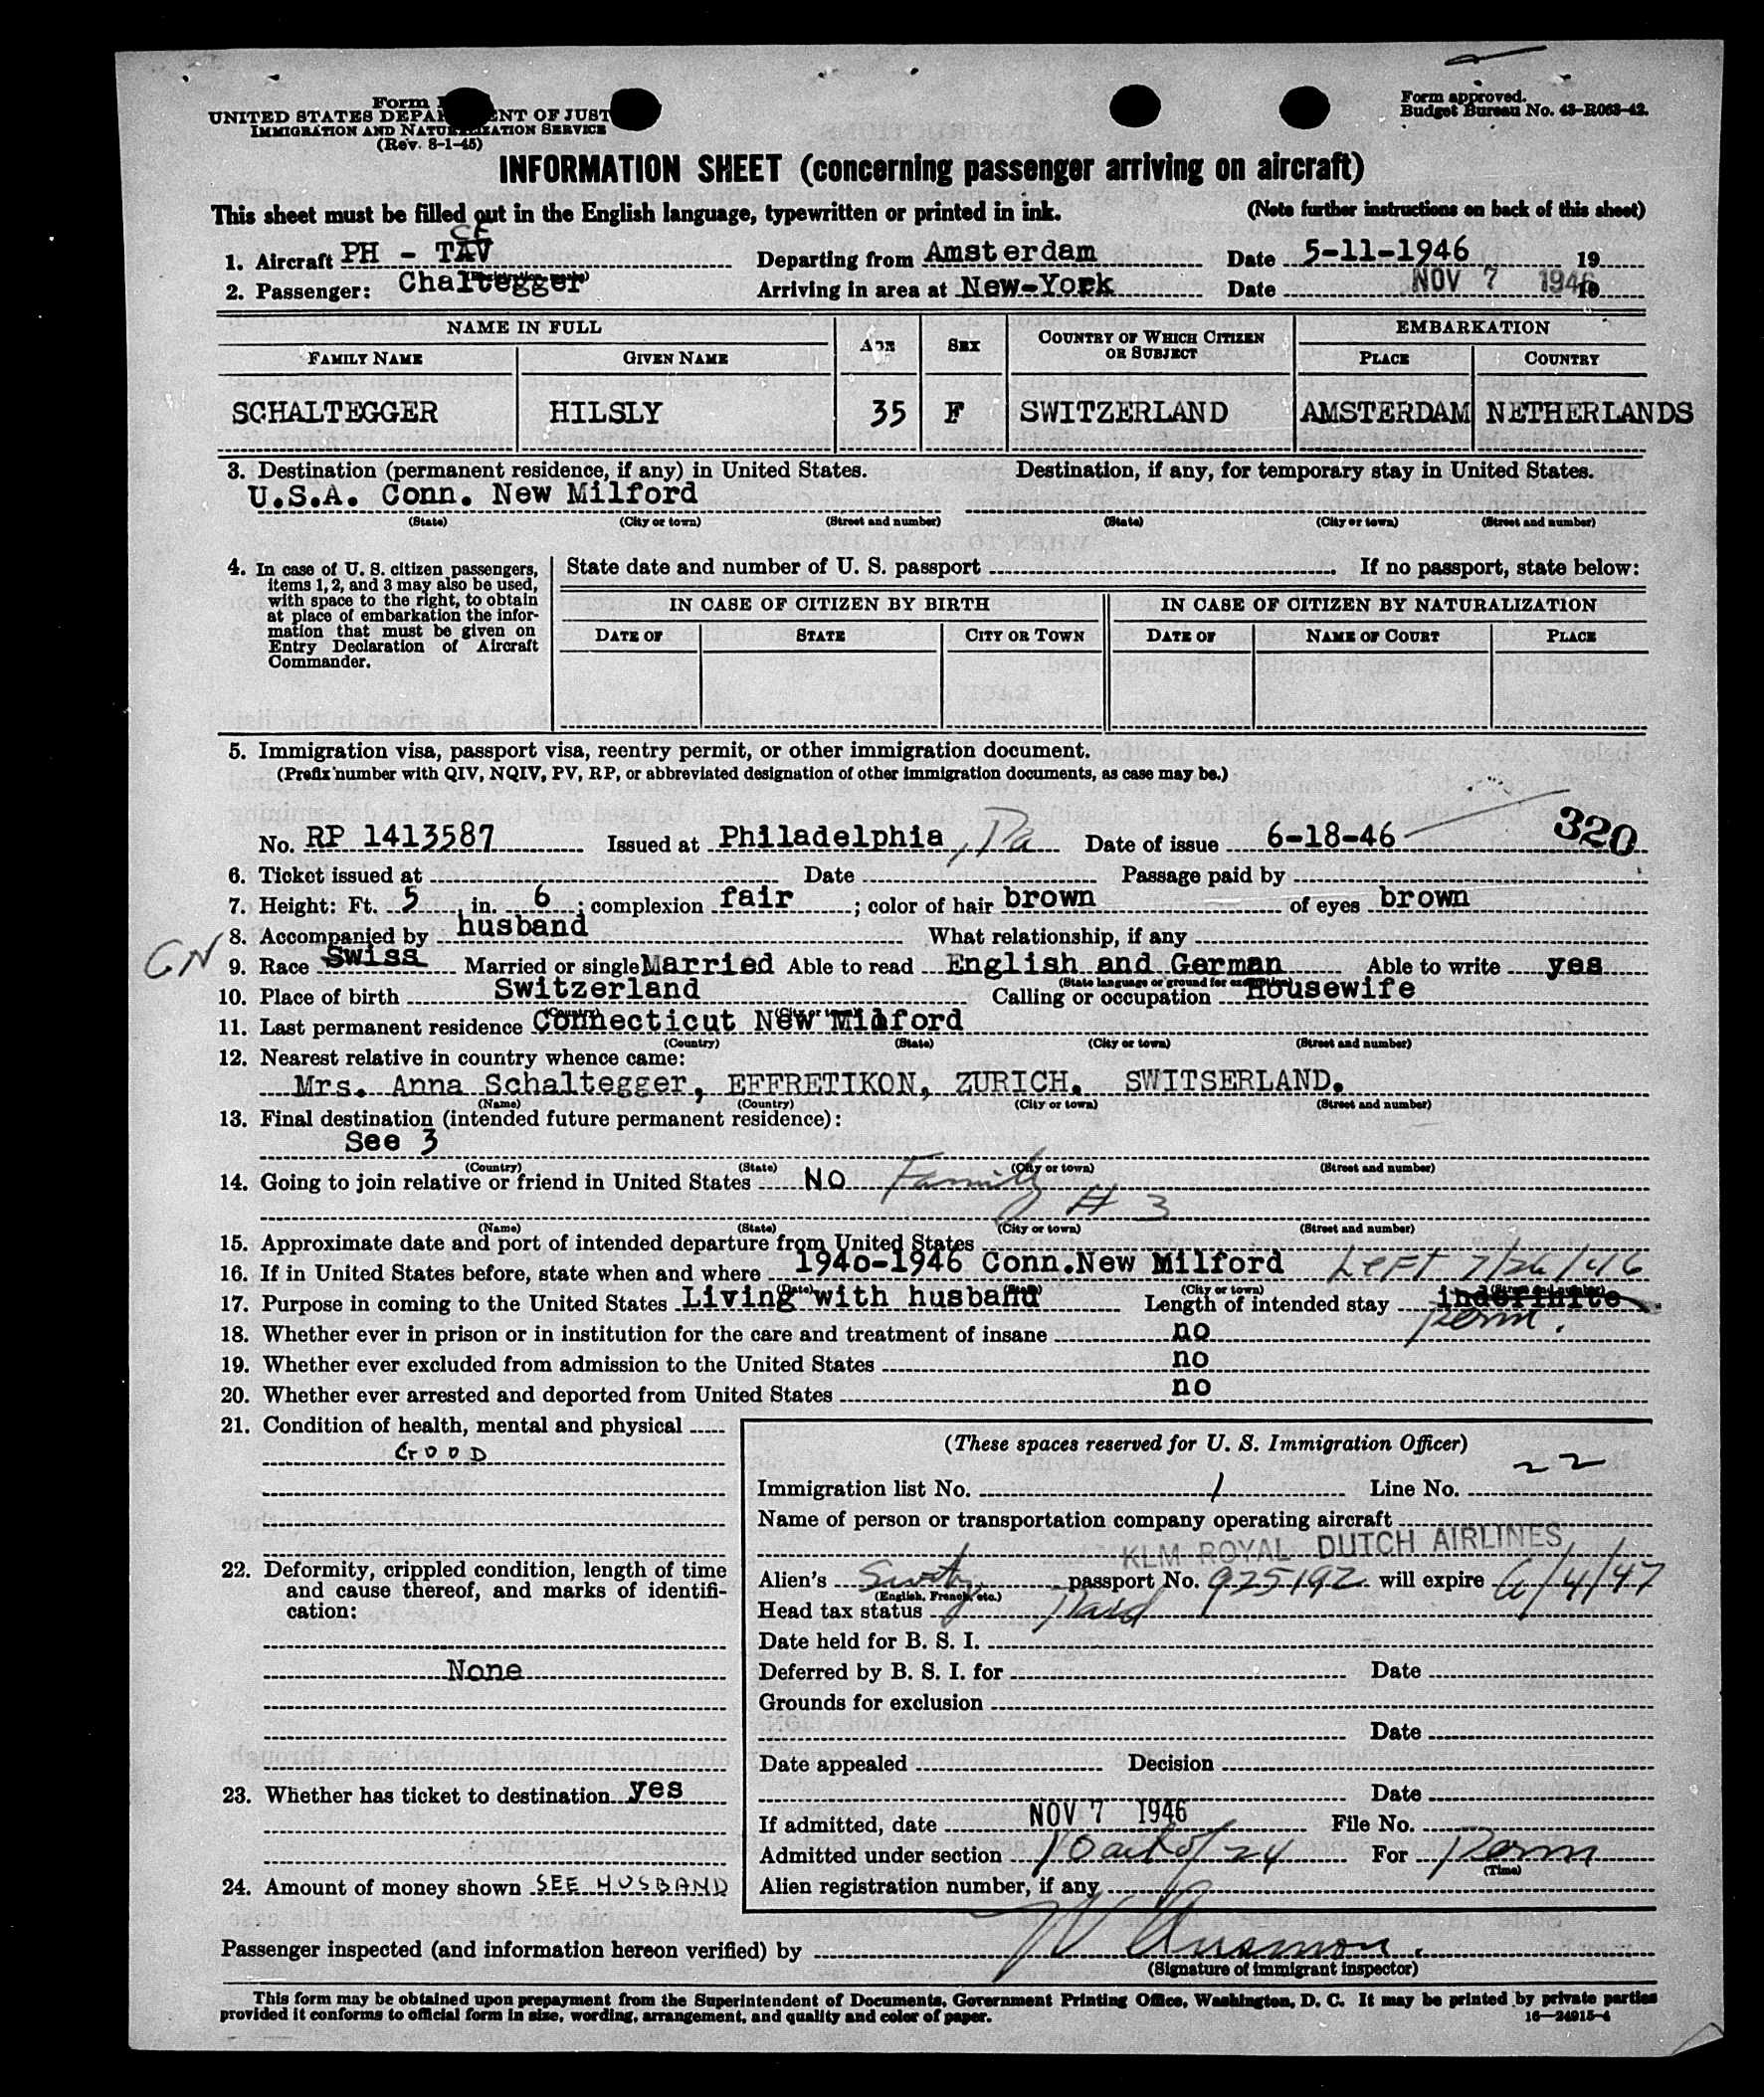 Form
UNITED STATES DEPAR ENT OF JUST
IMMIGRATION AND NATURALIZATION SERVICE
(Rev. 8-1-45)
Form approved.
Budget Bureau No. 43-R063-42.
INFORMATION SHEET (concerning passenger arriving on aircraft)
This sheet must be filled out in the English language, typewritten or printed in ink. (Note further instructions on back of this sheet)
CE
1. Aircraft PH - TAV Departing from Amsterdam Date 5-11-1946 19
(Registration marks)
2. Passenger: Chaltegger Arriving in area at New-York Date NOV 7 1946 19
NAME IN FULL AGE SEX COUNTRY OF WHICH CITIZEN OR SUBJECT EMBARKATION
FAMILY NAME GIVEN NAME PLACE COUNTRY
SCHALTEGGER HILSLY 35 F SWITZERLAND AMSTERDAM NETHERLANDS
3. Destination (permanent residence, if any) in United States. Destination, if any, for temporary stay in United States.
U.S.A. Conn. New Milford
(State) (City or town) (Street and number) (State) (City or town) (Street and number)
4. In case of U. S. citizen passengers,
items 1, 2, and 3 may also be used,
with space to the right, to obtain
at place of embarkation the infor-
mation that must be given on
Entry Declaration of Aircraft
Commander.
State date and number of U. S. passport If no passport, state below:
IN CASE OF CITIZEN BY BIRTH IN CASE OF CITIZEN BY NATURALIZATION
DATE OF STATE CITY OR TOWN DATE OF NAME OF COURT PLACE
5. Immigration visa, passport visa, reentry permit, or other immigration document.
(Prefix number with QIV, NQIV, PV, RP, or abbreviated designation of other immigration documents, as case may be.)
No. RP 1413587 Issued at Philadelphia, Pa Date of issue 6-18-46 320
6. Ticket issued at Date Passage paid by
7. Height: Ft. 5 in. 6 ; complexion fair ; color of hair brown of eyes brown
8. Accompanied by husband What relationship, if any
GN 9. Race Swiss Married or single Married Able to read English and German Able to write yes
(State language or ground for exemption)
10. Place of birth Switzerland Calling or occupation Housewife
(Country) (City or town)
11. Last permanent residence Connecticut New Milford
(Country) (State) (City or town) (Street and number)
12. Nearest relative in country whence came:
Mrs. Anna Schaltegger, EFFRETIKON, ZURICH. SWITSERLAND.
(Name) (Country) (City or town) (Street and number)
13. Final destination (intended future permanent residence):
See 3
(Country) (State) (City or town) (Street and number)
14. Going to join relative or friend in United States NO Family
# 3
(Name) (State) (City or town) (Street and number)
15. Approximate date and port of intended departure from United States
16. If in United States before, state when and where 1940-1946 Conn.New Milford Left 7/26/46
(Date) (State) (City or town) (Street and number)
17. Purpose in coming to the United States Living with husband Length of intended stay indefinite
Perm.
18. Whether ever in prison or in institution for the care and treatment of insane no
19. Whether ever excluded from admission to the United States no
20. Whether ever arrested and deported from United States no
21. Condition of health, mental and physical
GOOD
22. Deformity, crippled condition, length of time
and cause thereof, and marks of identifi-
cation:
None
23. Whether has ticket to destination yes
24. Amount of money shown SEE HUSBAND
(These spaces reserved for U. S. Immigration Officer)
Immigration list No. 1 Line No. 22
Name of person or transportation company operating aircraft
KLM ROYAL DUTCH AIRLINES
Alien's passport No. 925192 will expire 6/4/47
(English, French, etc.)
Head tax status Paid
Date held for B. S. I.
Deferred by B. S. I. for Date
Grounds for exclusion
Date
Date appealed Decision
Date
If admitted, date NOV 7 1946 File No.
Admitted under section 10 act of 24 For Perm
(Time)
Alien registration number, if any
Passenger inspected (and information hereon verified) by
(Signature of immigrant inspector)
This form may be obtained upon prepayment from the Superintendent of Documents, Government Printing Office, Washington, D. C. It may be printed by private parties
provided it conforms to official form in size, wording, arrangement, and quality and color of paper. 16—24915-4